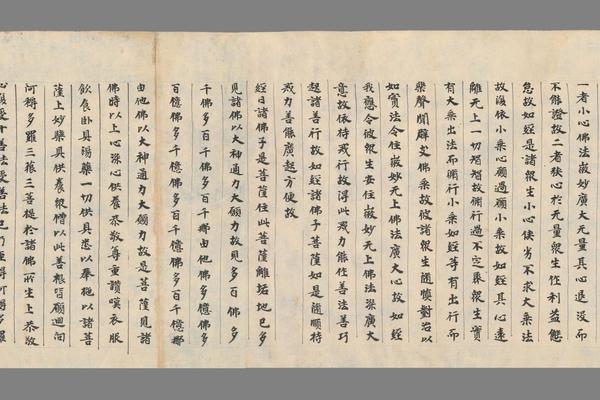 一者小心佛法微妙廣大无量其心退没而
不能證故二者狹心於无量衆生作利益懈
怠故如經是諸衆生小心狹劣不求大乘法
故復依小乘心願過願小乘故如經其心遠
離无上一切智智故偏行過不定乘衆生實
有大乘出法而偏行小乘如經等有出行而
樂聲聞辟支佛乘故彼諸衆生隨順對治以
如實法令住微妙无上佛法廣大心故如經
我應令彼衆生安住微妙无上佛法深廣大
意故依持戒行故得此戒力能作善法善巧
起諸善行故如經諸佛子菩薩如是隨順持
戒力善能廣起方便故
經曰諸佛子是菩薩住此菩薩離垢地已多
見諸佛以大神通力大願力故見多百佛多
千佛多百千佛多百千那由他佛多億佛多
百億佛多千億佛多百千億佛多百千億那
由他佛以大神通力大願力故是菩薩見諸
佛時以上心深心供養恭敬尊重讚嘆衣服
飲食卧具湯藥一切供具悉以奉施以諸菩
薩上妙樂具供養衆僧以此善根皆願迴向
阿耨多羅三藐三菩提於諸佛所生上恭敬